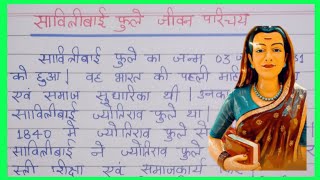 सावित्रीबाई फुले जीवन परिचय
सावित्रीबाई फुले का जन्म 03
को हुआ। वह भारत की पहली
एवं समाज सुधारिका थी। उनका
सावित्रीबाई ज्योतिराव फुले था।
1840 में ज्योतिराव फुले से
सावित्रीबाई ने ज्योतिराव फुले
एवं समाजकार्य